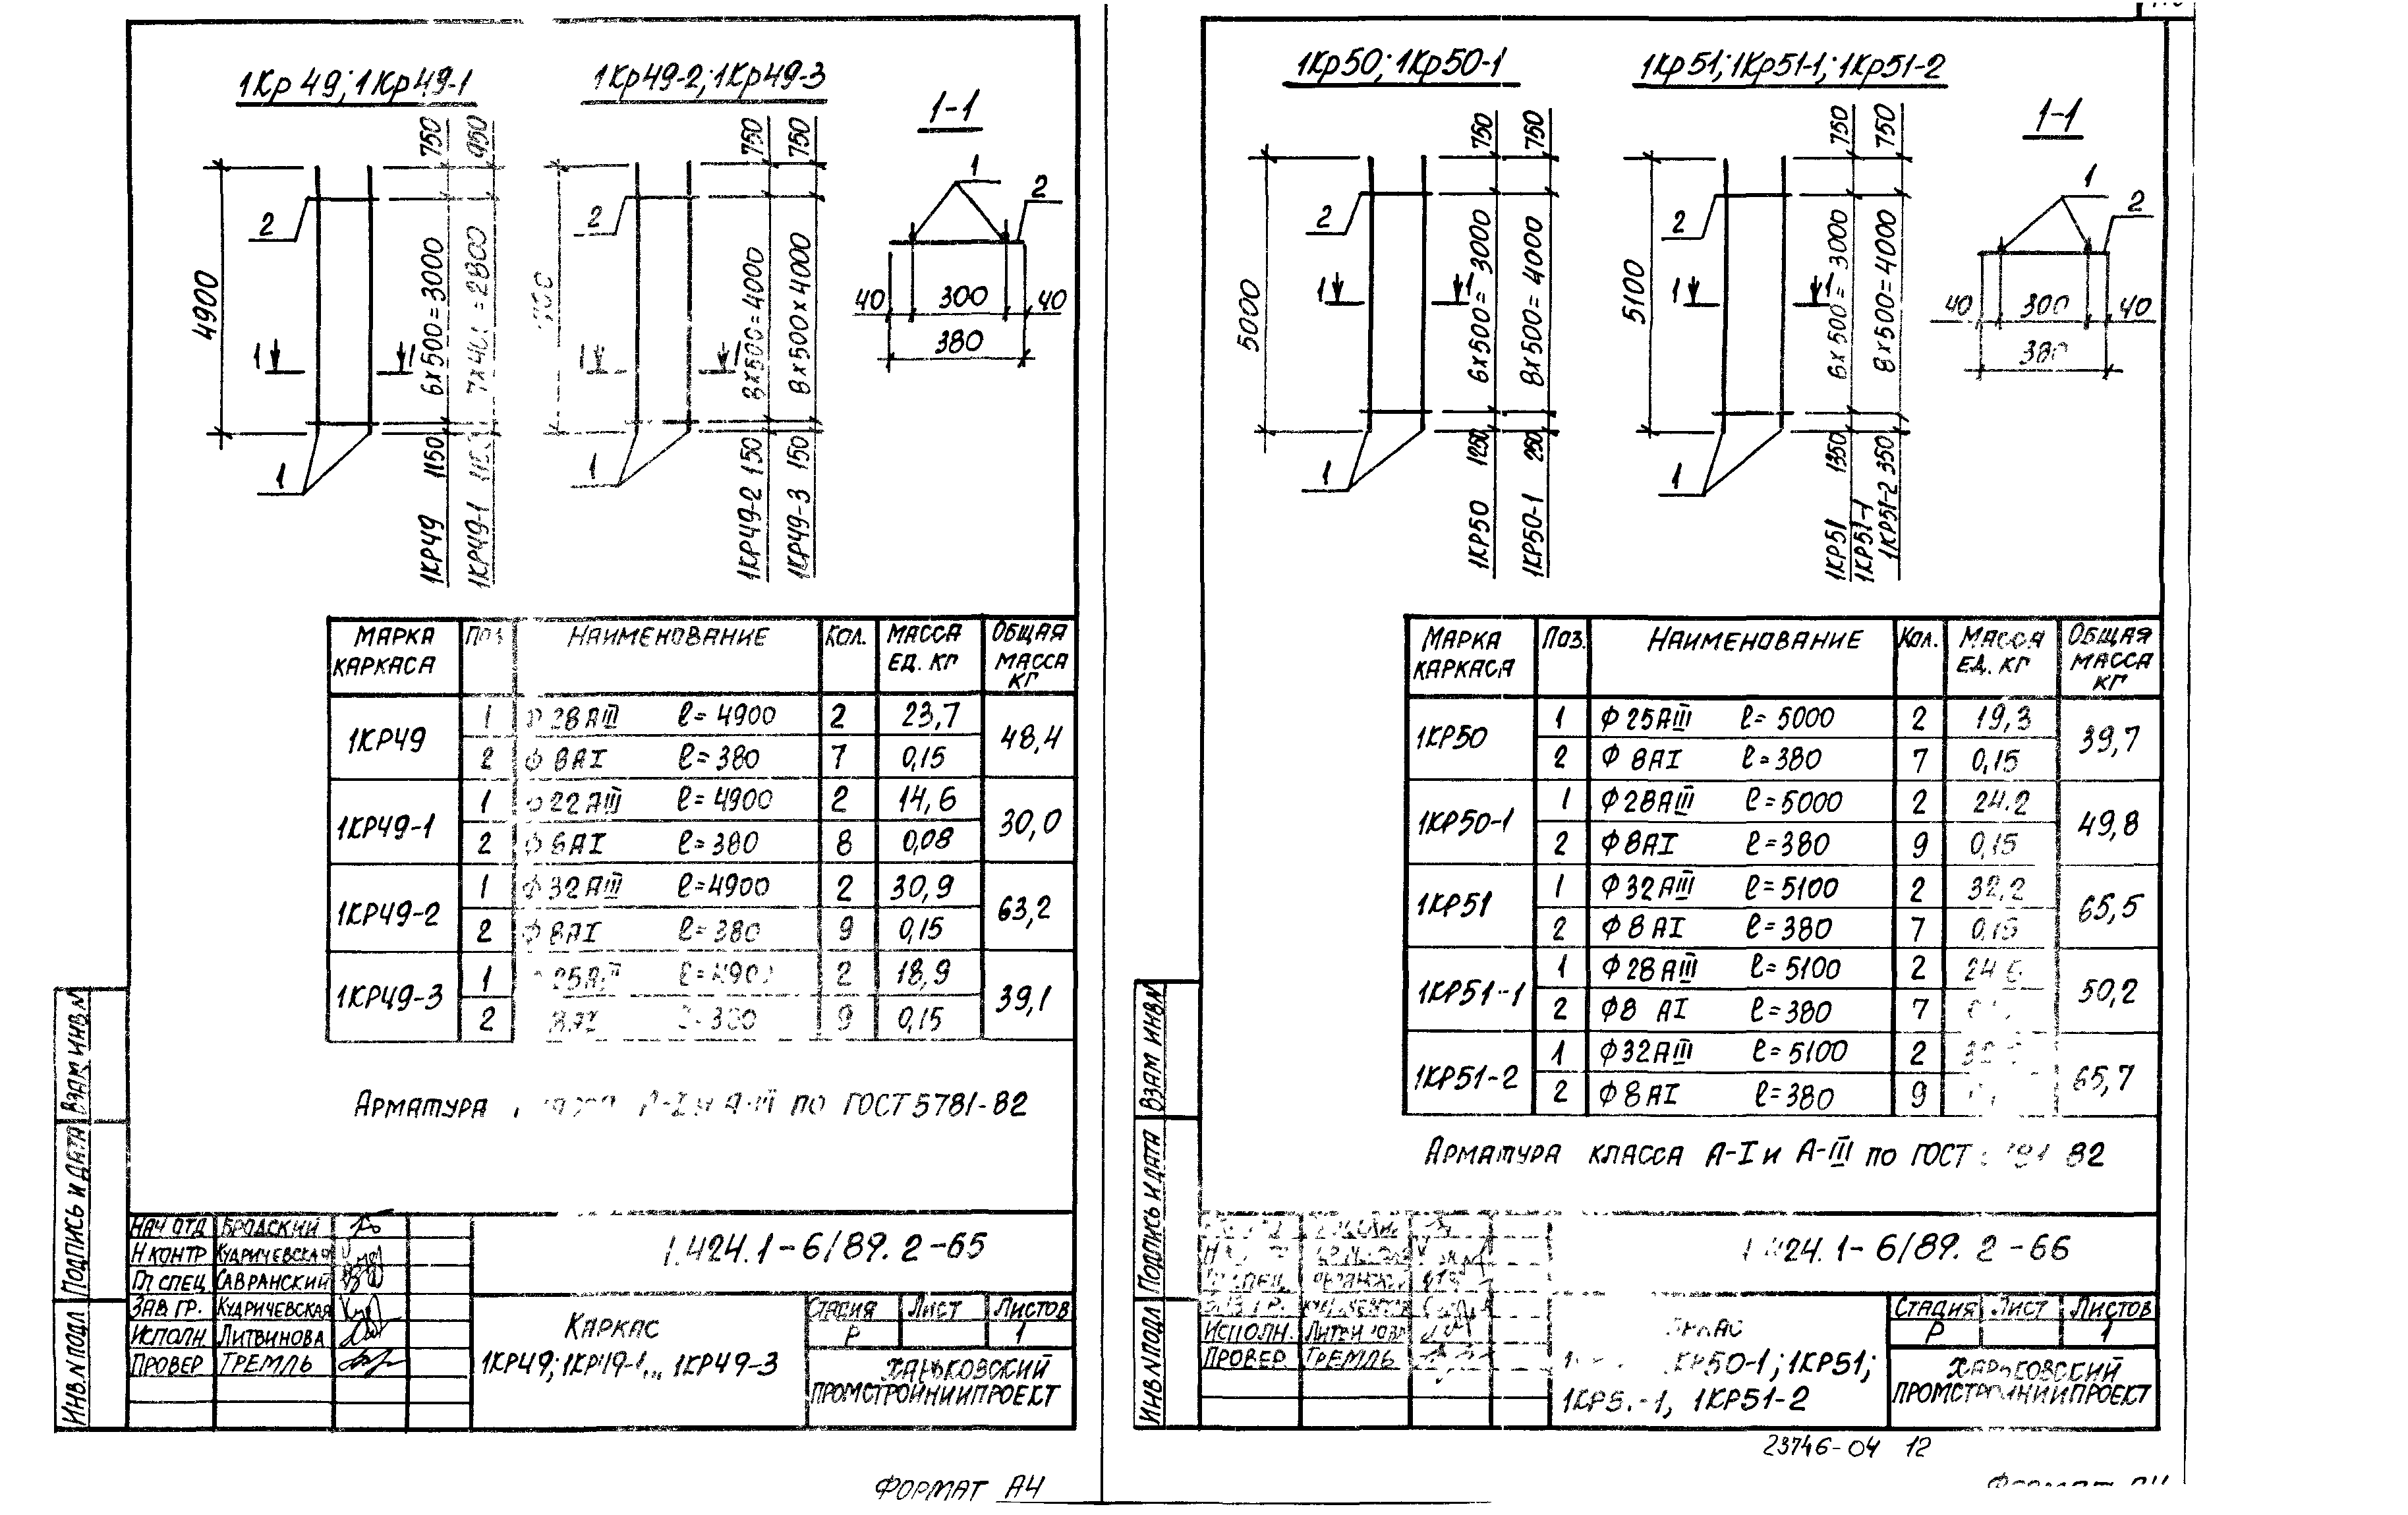 1Кр49; 1Кр49-1
1Кр49-2; 1Кр49-3
1-1
4900
2
1
1
1
750
6х500=3000
1150
1КР49
950
=2800
1КР49-1
2
1
1
1
750
8х500=4000
150
1КР49-2
750
8х500х4000
150
1КР49-3
1
2
40
300
40
380
МАРКА КАРКАСА
НАИМЕНОВАНИЕ
КОЛ.
МАССА ЕД. КГ
ОБЩАЯ МАССА КГ
1КР49
1 28АIII ℓ=4900 2 23,7
48,4
2 Ф 8АI ℓ=380 7 0,15
1КР49-1
1 Ф22АIII ℓ=4900 2 14,6
30,0
2 Ф6АI ℓ=380 8 0,08
1КР49-2
1 Ф32АIII ℓ=4900 2 30,9
63,2
2 Ф8АI ℓ=380 9 0,15
1КР49-3
1 2 18,9
39,1
2 9 0,15
АРМАТУРА А-I и А-III ПО ГОСТ 5781-82
ВЗАМ ИНВ.N
ПОДПИСЬ И ДАТА
ИНВ.N ПОДЛ
НАЧ ОТД БРОДСКИЙ
Н КОНТР КУДРИЧЕВСКАЯ
ГЛ СПЕЦ САВРАНСКИЙ
ЗАВ. ГР. КУДРИЧЕВСКАЯ
ИСПОЛН. ЛИТВИНОВА
ПРОВЕР ТРЕМЛЬ
1.424.1-6/89.2-65
КАРКАС
1КР49; 1КР49-1... 1КР49-3
СТАДИЯ ЛИСТ ЛИСТОВ
Р 1
ХАРЬКОВСКИЙ
ПРОМСТРОЙНИИПРОЕКТ
ФОРМАТ А4
1Кр50; 1Кр50-1
1Кр51; 1Кр51-1; 1Кр51-2
1-1
5000
2
1
1
1
750
6х500=3000
1250
1КР50
750
8х500=4000
250
1КР50-1
5100
2
1
1
1
750
6х500=3000
1350
1КР51
1КР51-1
750
8х500=4000
350
1КР51-2
1
2
40
300
40
380
МАРКА КАРКАСА
ПОЗ.
НАИМЕНОВАНИЕ
КОЛ.
МАССА ЕД. КГ
ОБЩАЯ МАССА КГ
1КР50
1 Ф25АIII ℓ=5000 2 19,3
39,7
2 Ф 8АI ℓ=380 7 0,15
1КР50-1
1 Ф28АIII ℓ=5000 2 24.2
49,8
2 Ф8АI ℓ=380 9 0,15
1КР51
1 Ф32АIII ℓ=5100 2 32,2
65,5
2 Ф8АI ℓ=380 7 0,15
1КР51-1
1 Ф28АIII ℓ=5100 2
50,2
2 Ф8 АI ℓ=380 7
1КР51-2
1 Ф32АIII ℓ=5100 2
65,7
2 Ф8АI ℓ=380 9
АРМАТУРА КЛАССА А-I и А-III ПО ГОСТ 82
ВЗАМ ИНВ.N
ПОДПИСЬ И ДАТА
ИНВ.N ПОДЛ
ИСПОЛН.
ПРОВЕР ТРЕМЛЬ
24.1-6/89.2-66
КР50-1; 1КР51;
1КР51-1, 1КР51-2
СТАДИЯ ЛИСТ ЛИСТОВ
Р 1
ХАРЬКОВСКИЙ
ПРОМСТРОЙНИИПРОЕКТ
23746-04 12